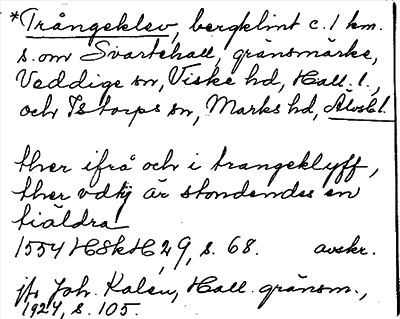 *Trångeklev, bergklint c. 1 km.
s. om Svartehall, gränsmärke,
Veddige sn, Viske hd, Hall. l.,
och Istorps sn, Marks hd, Älvsb l.
ther ifrå och i trangeklyff,
ther vdtÿ är stondendes en
tiäldra
1554 HSkH, 29, s. 68. avskr.
jfr Joh. Kalén, Hall. gränsm.,
1924, s. 105.